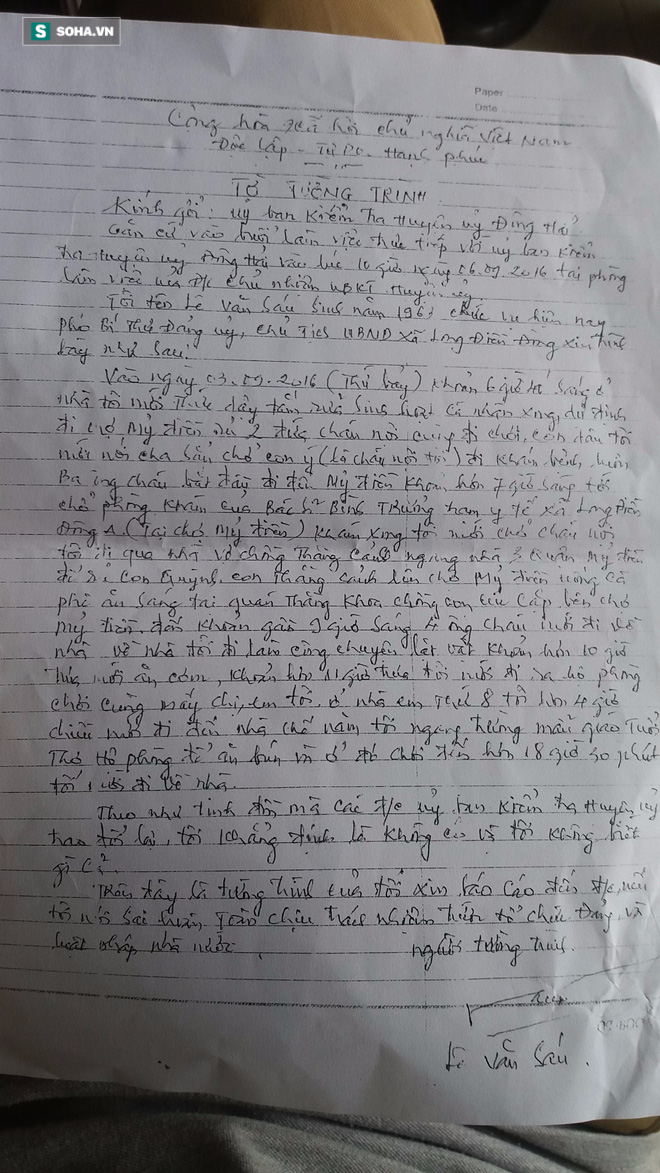 SOHA.VN
Paper
Date
Cộng hòa xã hội chủ nghĩa Việt Nam
Độc lập - Tự Do - Hạnh phúc
TỜ TƯỜNG TRÌNH
Kính gởi: uỷ ban Kiểm tra Huyện uỷ Đông Hải.
Căn cứ vào buổi làm việc trực tiếp với uỷ ban kiểm
tra Huyện uỷ Đông Hải vào lúc 10 giờ ngày 06.09.2016 tại phòng
làm việc của Đ/c chủ nhiệm UBKT Huyện uỷ
Tôi tên Lê Văn Sáu sinh năm chức vụ hiện nay
phó Bí Thư Đảng uỷ, chủ Tịch UBND xã Long Điền Đông xin trình
bày như sau:
Vào ngày 03.09.2016 (Thứ bảy) khoản 6 giờ sáng ở
nhà tôi mới Thức dậy tắm rửa sinh hoạt cá nhân xong, dự định
đi chợ Mỷ điền 2 đứa cháu nội cùng đi chơi, con dâu tôi
mới nói cha sẳn chở con ý (là cháu nội tôi) đi khám bệnh, luôn
Ba ông cháu bắt đầu đi đến Mỷ điền khoản hơn 7 giờ sáng tới
chổ phòng khám của Bác sĩ Bình Trưởng trạm y tế xã Long Điền
Đông A. (Tại chợ Mỷ điền) khám xong tôi mới chở cháu nội
tôi đi qua nhà vợ chồng Thằng Cảnh ngang nhà Mỷ điền
để con Quỳnh, con thằng cảnh lên chợ Mỷ điền uống cà
phê ăn sáng tại quán Thằng Khoa chồng con bên chợ
Mỷ điền đến khoản gần 9 giờ sáng 4 ông cháu mới đi về
nhà về nhà tôi đi làm công chuyện lặt vặt khoản hơn 10 giờ
trưa mới ăn cơm, khoản hơn 11 giờ trưa tôi mới đi ra hộ phòng
chơi cùng mấy chị, em tôi, ở nhà em Thứ 8 tôi hơn 4 giờ
chiều mới đi đến nhà chế năm tôi ngang trường mẫu giáo Tuổi
Thơ Hộ phòng để ăn bún và ở đó chơi đến hơn 18 giờ 30 phút
tôi mới đi về nhà.
Theo như tinh đồn mà các đ/c uỷ ban kiểm tra Huyện uỷ
trao đổi lại, tôi khẳng định là không có và tôi không biết
gì cả.
Trên đây là tường trình của tôi xin báo cáo đến đ/c, nếu
tôi nói sai hoàn Toàn chịu trách nhiệm trước tổ chức Đảng và
luật pháp nhà nước. người tường trình.
Lê Văn Sáu.